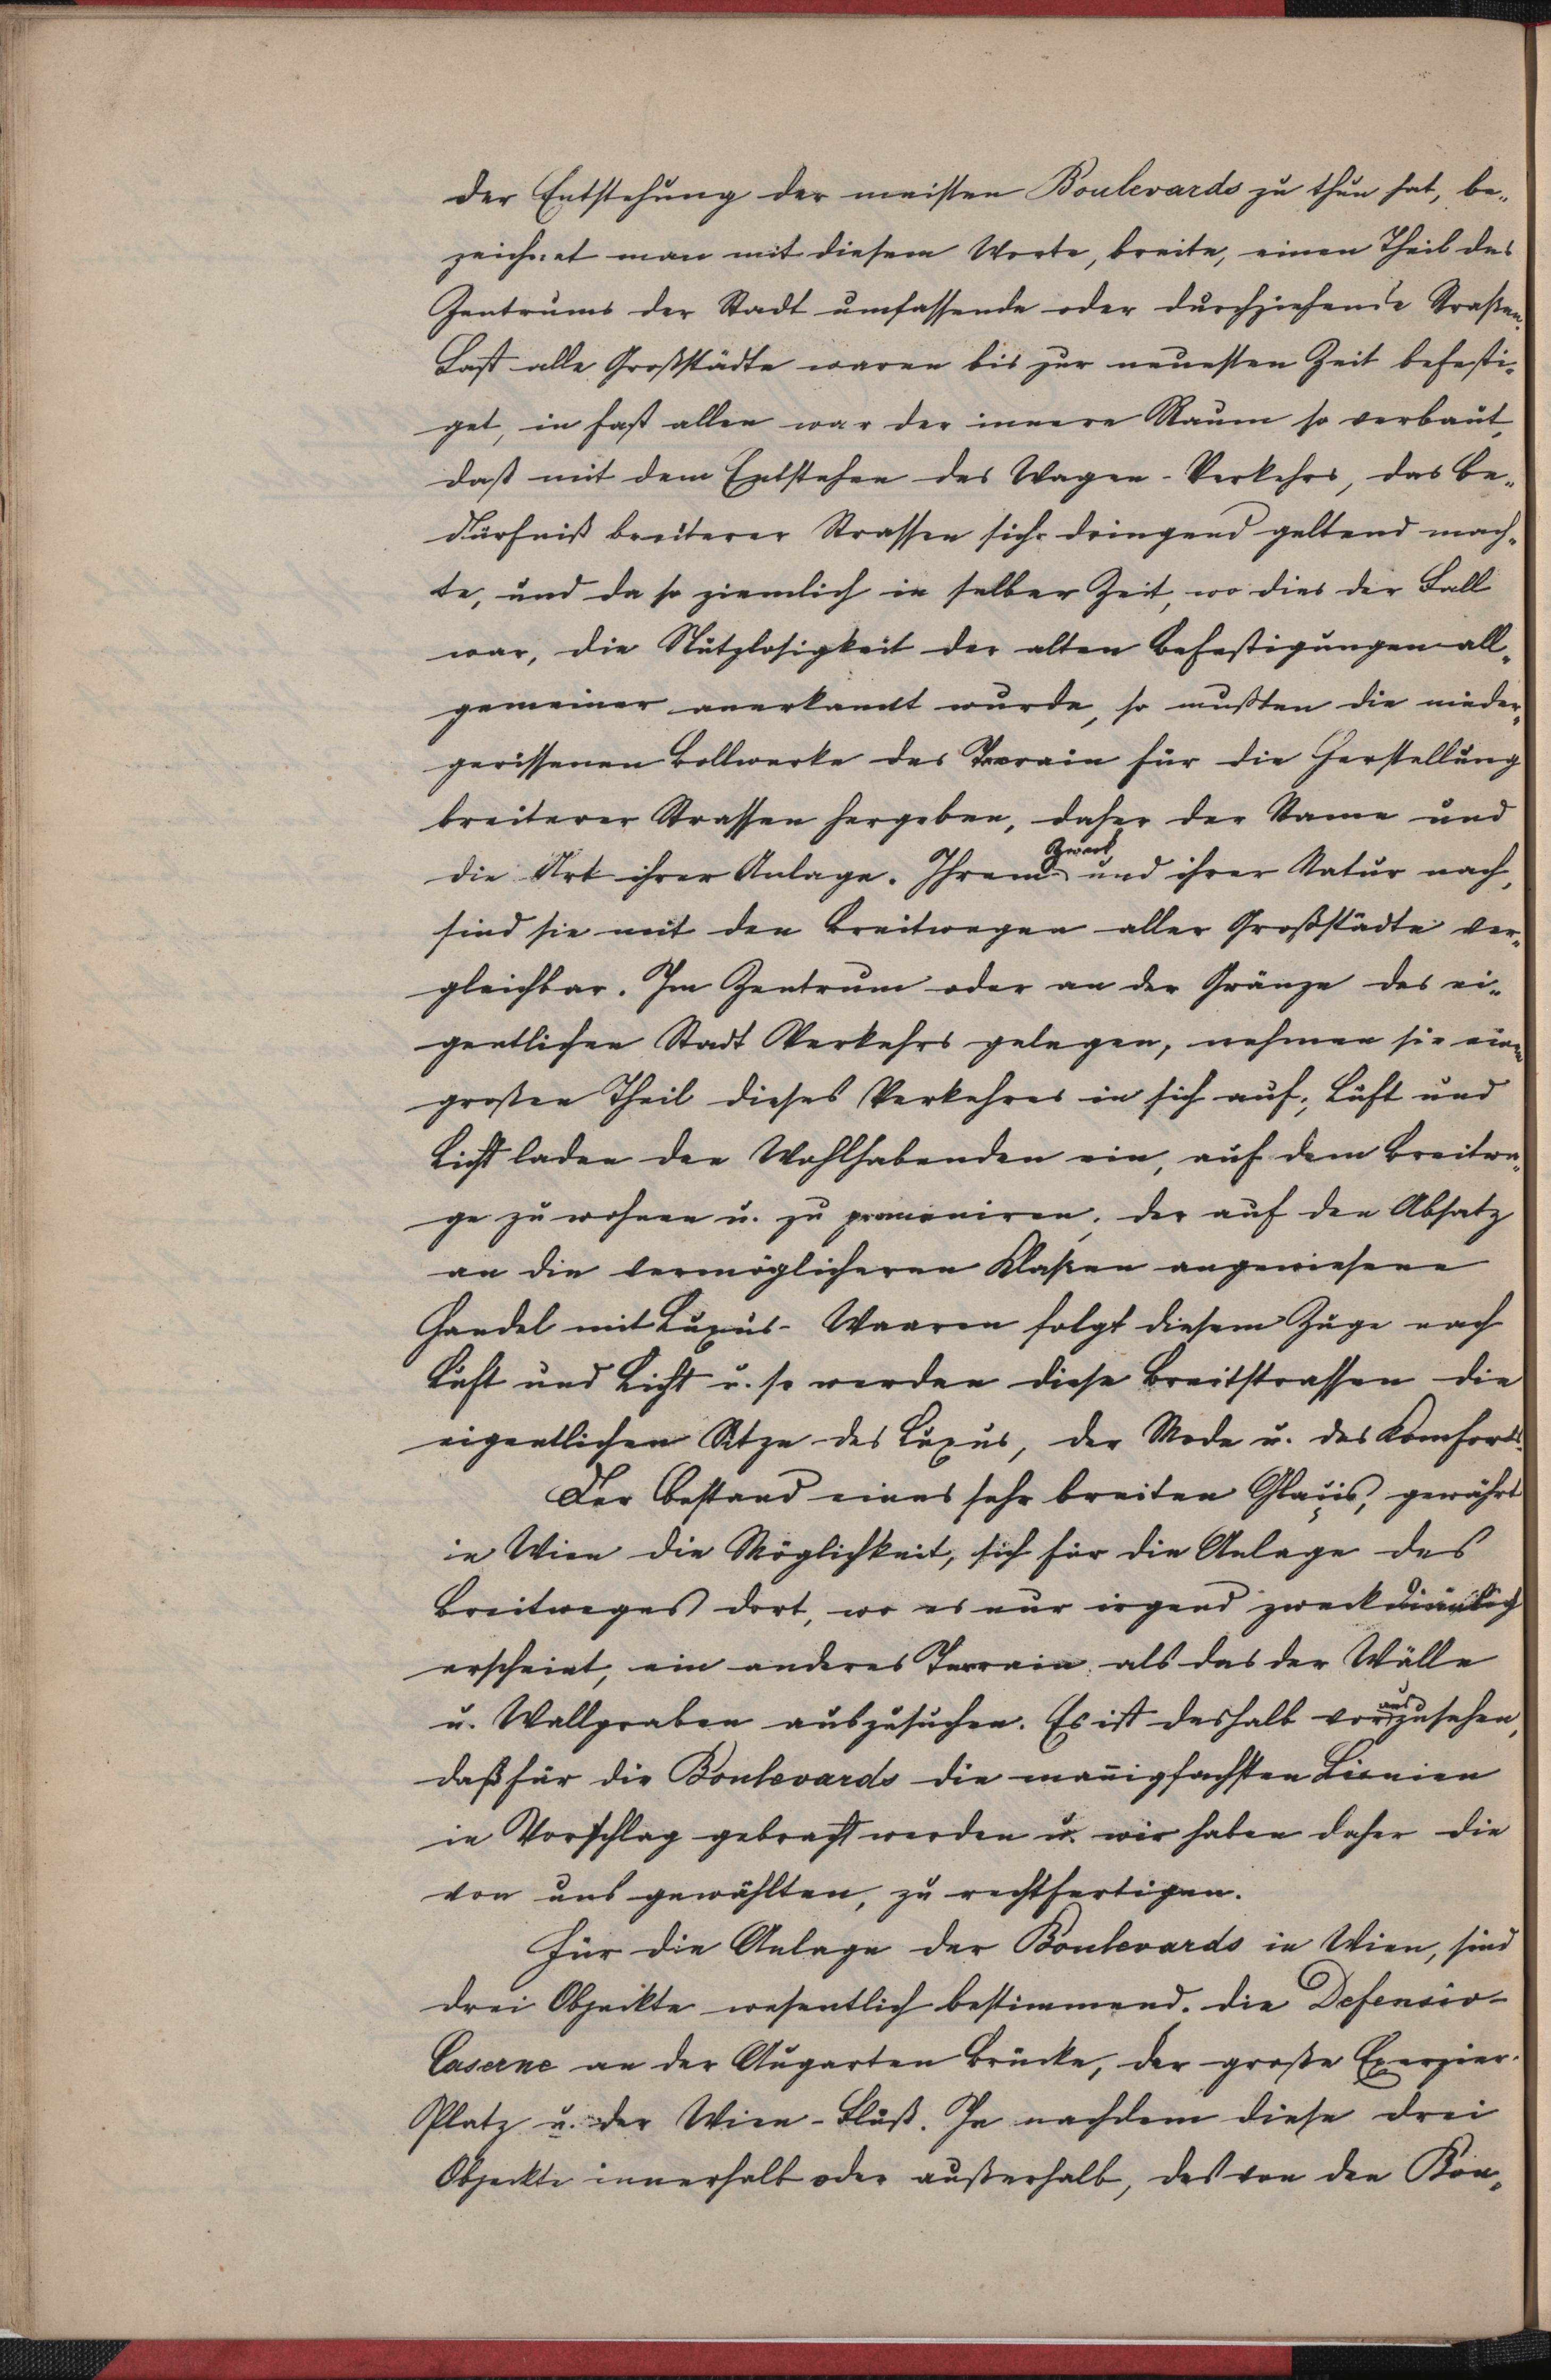 der Entstehung der meisten Boulevards zu thun hat, be„
zeichnet man mit diesem Worte, breite, einen Theil des
Zentrums der Stadt umfassende oder durchziehende Straßen.
Fast alle Großstädte waren bis zur neuesten Zeit befesti„
get, in fast allen war der innere Raum so verbaut,
daß mit dem Entstehen des Wagen-Verkehrs, das Be„
dürfniß breiterer Strassen sich dringend geltend mach„
te, und da so ziemlich in selber Zeit, wo dies der Fall
war, die Nützlosigkeit der alten Befestigungen all„
gemeiner anerkannt wurde, so mußten die nieder„
gerissenen Bollwerke das Terrain für die Herstellung
breiterer Strassen hergeben, daher der Name und
die Art ihrer Anlage. Ihrem Zweck und ihrer Natur nach,
sind sie mit den Breitwegen aller Großstädte ver„
gleichbar. Im Zentrum oder an der Gränze des ei„
gentlichen Stadt Verkehrs gelegen, nehmen sie einen
großen Theil dieses Verkehres in sich auf; Luft und
Licht laden den Wohlhabenden ein, auf dem Breitwe„
ge zu wohnen u. zu promeniren; der auf den Absatz
an die vermöglicheren Klaßen angewiesene
Handel mit Luxus-Waaren folgt diesem Zuge nach
Luft und Licht u. so werden diese Breitstrassen die
eigentlichen Sitze des Luxus, der Mode u. des Komforts.
Der Bestand eines sehr breiten Glaçis, gewährt
in Wien die Möglichkeit, sich für die Anlage des
Breitweges dort, wo es nur irgend zweckdienlich
erscheint, ein anderes Terrain als das der Wälle
u. Wallgraben auszusuchen. Es ist deshalb vorauszusehen,
daß für die Boulevards die mañigfachsten Linien
in Vorschlag gebracht werden u. wir haben daher die
von uns gewählten, zu rechtfertigen.
Für die Anlage der Boulevards in Wien, sind
drei Objeckte wesentlich bestimmend. die Defensiv-
Caserne an der Augarten Brücke, der große Exerzier-
Platz u. der Wien-Fluß. Je nachdem diese drei
Objeckte innerhalb oder außerhalb, des von den Bou„